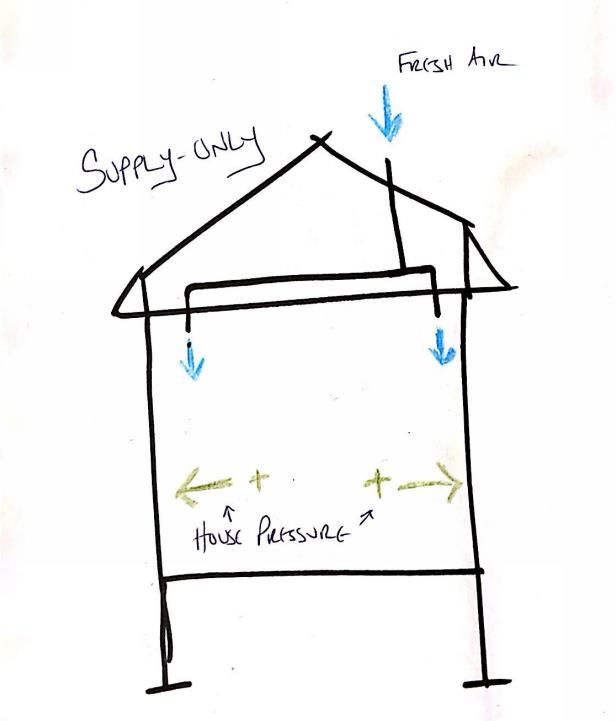 FRESH AIR
SUPPLY-ONLY
+ +
HOUSE PRESSURE